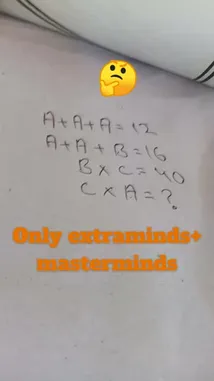 A+A+A=12
A+A+B=16
B×C=40
C×A=?
Only extraminds+
masterminds